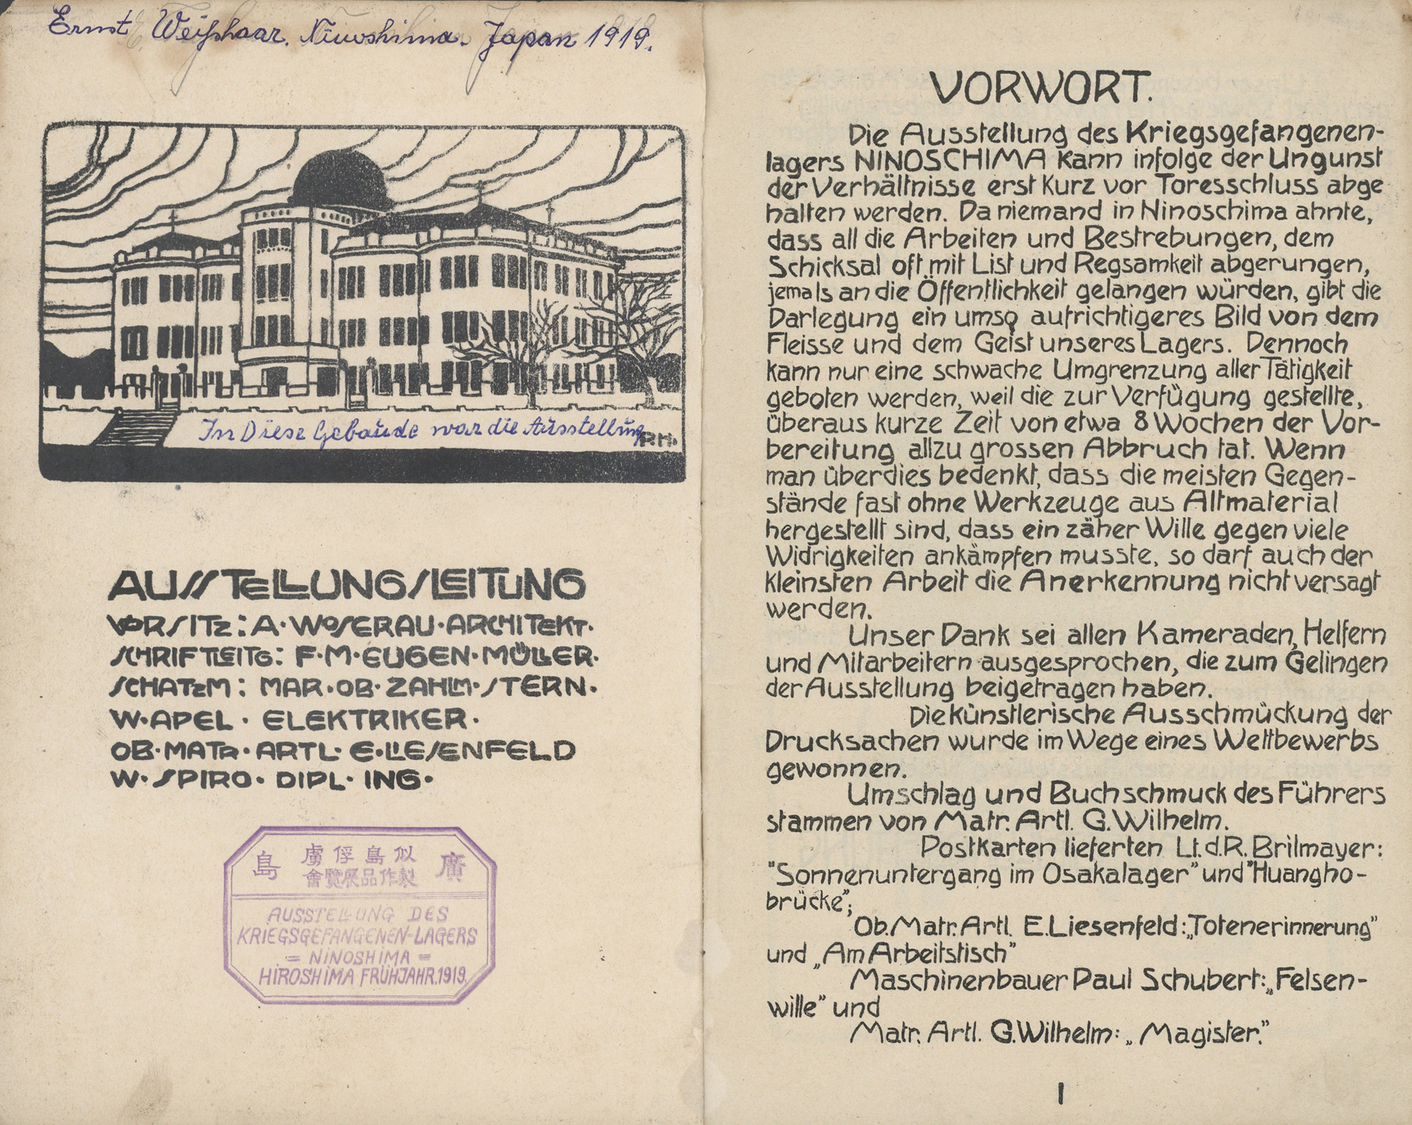 Ernst Weißhaar. Ninoshima. Japan 1919.
In Diese Gebaude war die Ausstellung
R.H.
AUSSTELLUNGSLEITUNG
VORSITZ: A. WOSERAU. ARCHITEKT.
SCHRIFTLEITG: F. M. EUGEN. MÖLLER.
SCHATZM: MAR. OB. ZAHLM. STERN.
W. APEL. ELEKTRIKER.
OB. MATR. ARTL. E. LIESENFELD
W. SPIRO. DIPL. ING.
似島俘虜
廣島
製作品展覽會
AUSSTELLUNG DES
KRIEGSGEFANGENEN-LAGERS
= NINOSHIMA =
HIROSHIMA FRÜHJAHR.1919.
VORWORT.
Die Ausstellung des Kriegsgefangenen-
lagers NINOSCHIMA kann infolge der Ungunst
der Verhältnisse erst kurz vor Toresschluss abge
halten werden. Da niemand in Ninoschima ahnte,
dass all die Arbeiten und Bestrebungen, dem
Schicksal oft mit List und Regsamkeit abgerungen,
jemals an die Öffentlichkeit gelangen würden, gibt die
Darlegung ein umso aufrichtigeres Bild von dem
Fleisse und dem Geist unseres Lagers. Dennoch
kann nur eine schwache Umgrenzung aller Tätigkeit
geboten werden, weil die zur Verfügung gestellte,
überaus kurze Zeit von etwa 8 Wochen der Vor-
bereitung allzu grossen Abbruch tat. Wenn
man überdies bedenkt, dass die meisten Gegen-
stände fast ohne Werkzeuge aus Altmaterial
hergestellt sind, dass ein zäher Wille gegen viele
Widrigkeiten ankämpfen musste, so darf auch der
kleinsten Arbeit die Anerkennung nicht versagt
werden.
Unser Dank sei allen Kameraden, Helfern
und Mitarbeitern ausgesprochen, die zum Gelingen
der Ausstellung beigetragen haben.
Die künstlerische Ausschmückung der
Drucksachen wurde im Wege eines Wettbewerbs
gewonnen.
Umschlag und Buchschmuck des Führers
stammen von Matr. Artl. G. Wilhelm.
Postkarten lieferten Lt. d. R. Brilmayer:
"Sonnenuntergang im Osakalager" und "Huangho-
brücke";
Ob. Matr. Artl. E. Liesenfeld: „Totenerinnerung"
und „Am Arbeitstisch"
Maschinenbauer Paul Schubert: „Felsen-
wille" und
Matr. Artl. G. Wilhelm: „Magister."
1